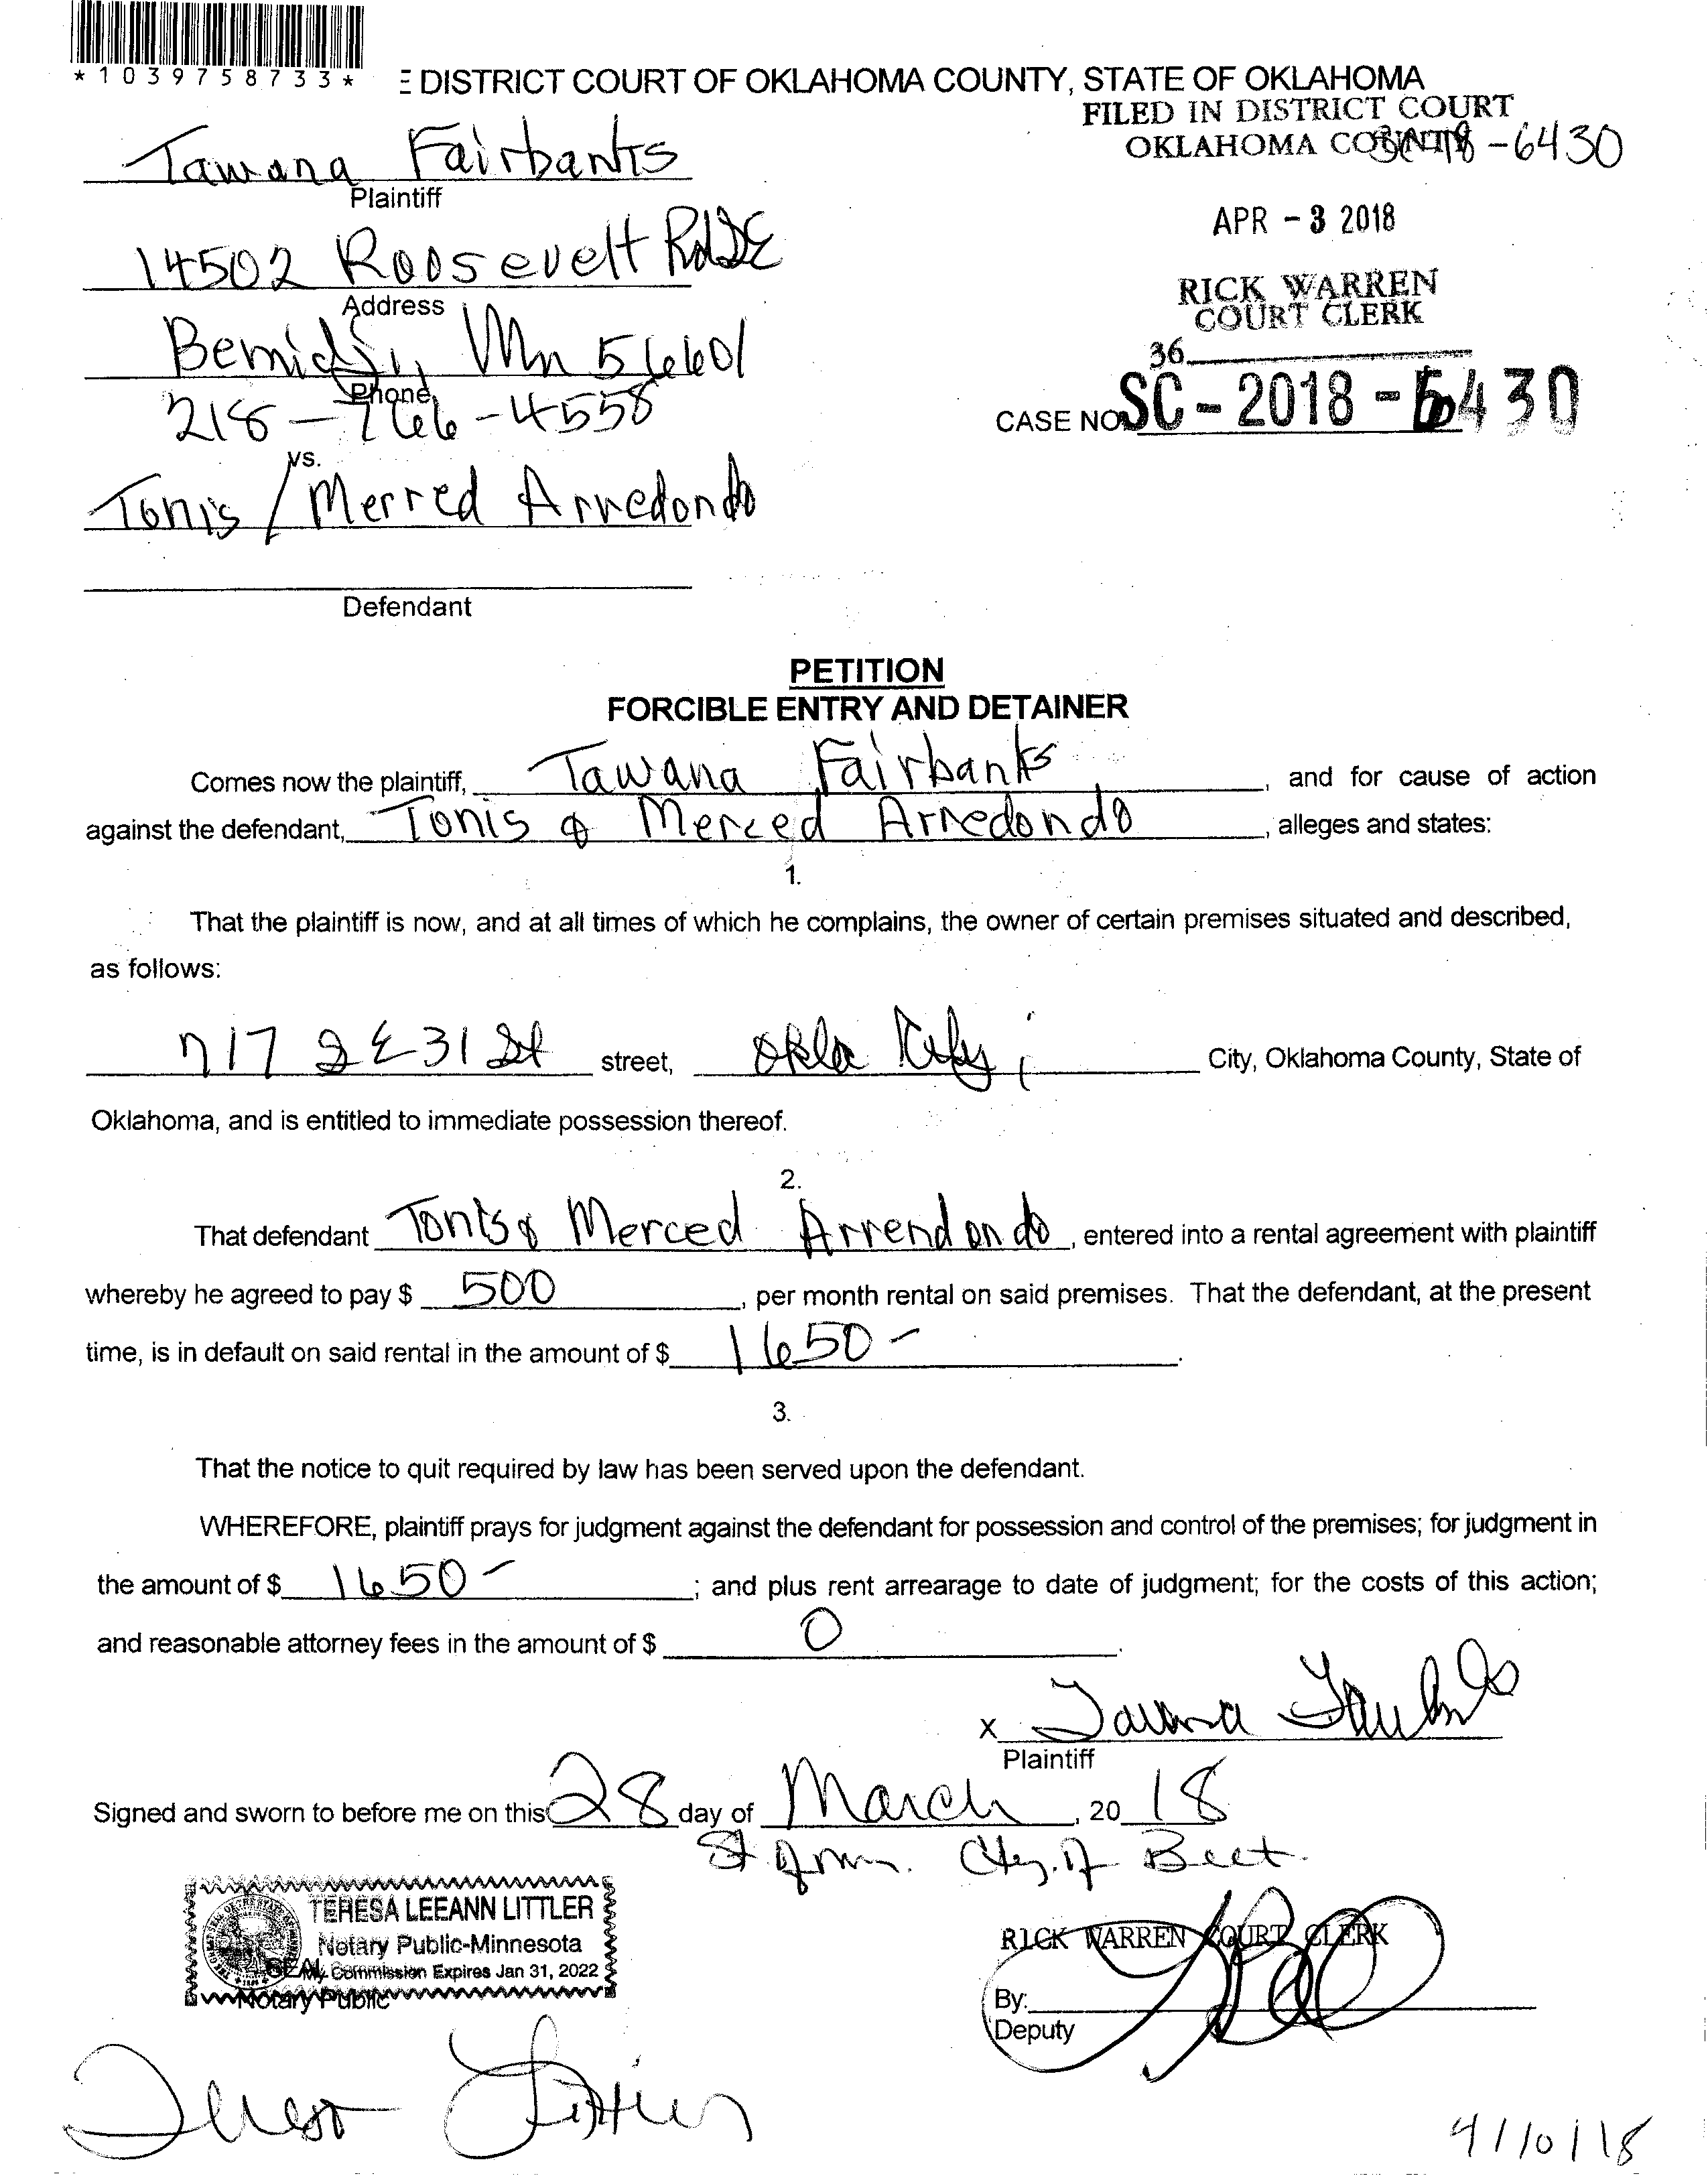 *1039758733*
E DISTRICT COURT OF OKLAHOMA COUNTY, STATE OF OKLAHOMA
FILED IN DISTRICT COURT
OKLAHOMA COUNTY
-6430
Tawana Fairbanks
Plaintiff
APR - 3 2018
14502 Roosevelt Rd SE
Address
RICK WARREN
COURT CLERK
Bemidji, Mn 56601
Phone
36
218-766-4558
CASE NO. SC - 2018 - 6430
vs.
Tonis / Merced Arredondo
Defendant
PETITION
FORCIBLE ENTRY AND DETAINER
Comes now the plaintiff, Tawana Fairbanks, and for cause of action
against the defendant, Tonis & Merced Arredondo, alleges and states:
1.
That the plaintiff is now, and at all times of which he complains, the owner of certain premises situated and described,
as follows:
717 SE 31 St street, Okla City, City, Oklahoma County, State of
Oklahoma, and is entitled to immediate possession thereof.
2.
That defendant Tonis & Merced Arrendondo, entered into a rental agreement with plaintiff
whereby he agreed to pay $ 500, per month rental on said premises. That the defendant, at the present
time, is in default on said rental in the amount of $ 1650-.
3.
That the notice to quit required by law has been served upon the defendant.
WHEREFORE, plaintiff prays for judgment against the defendant for possession and control of the premises; for judgment in
the amount of $ 1650-; and plus rent arrearage to date of judgment; for the costs of this action;
and reasonable attorney fees in the amount of $ 0.
x Tawana Fairbanks
Plaintiff
Signed and sworn to before me on this 28 day of March, 20 18
St of Cty. of
TERESA LEEANN LITTLER
Notary Public-Minnesota
SEAL My Commission Expires Jan 31, 2022
Notary Public
RICK WARREN COURT CLERK
By:
Deputy
Teresa Littler
4/10/18